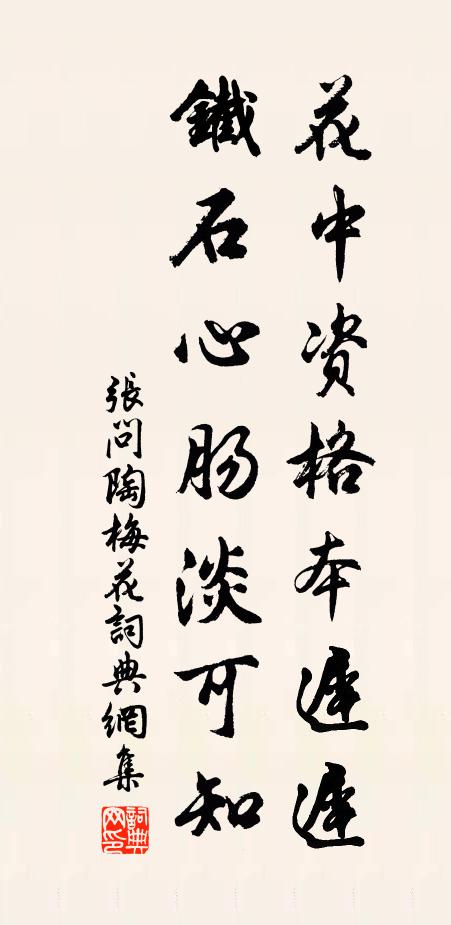 花中资格本遲遲
鐵石心肠淡可知
張问陶梅花詞典網集
詞典网印